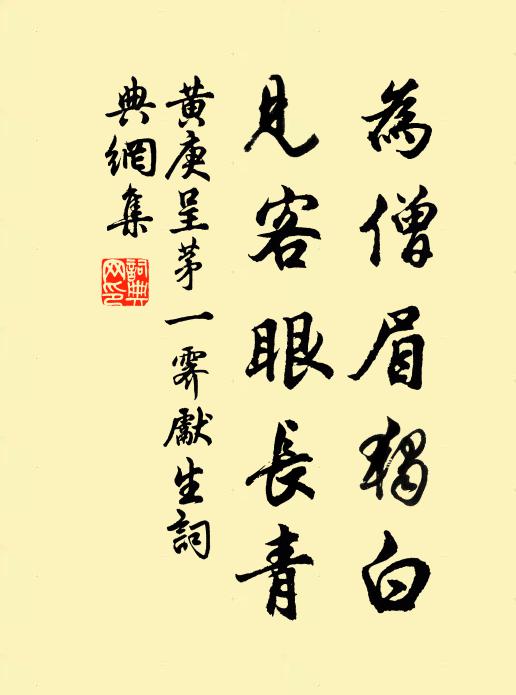 為僧眉獨白
見客眼長青
黃庚呈茅一霽獻生詞
典網集
詞典網印